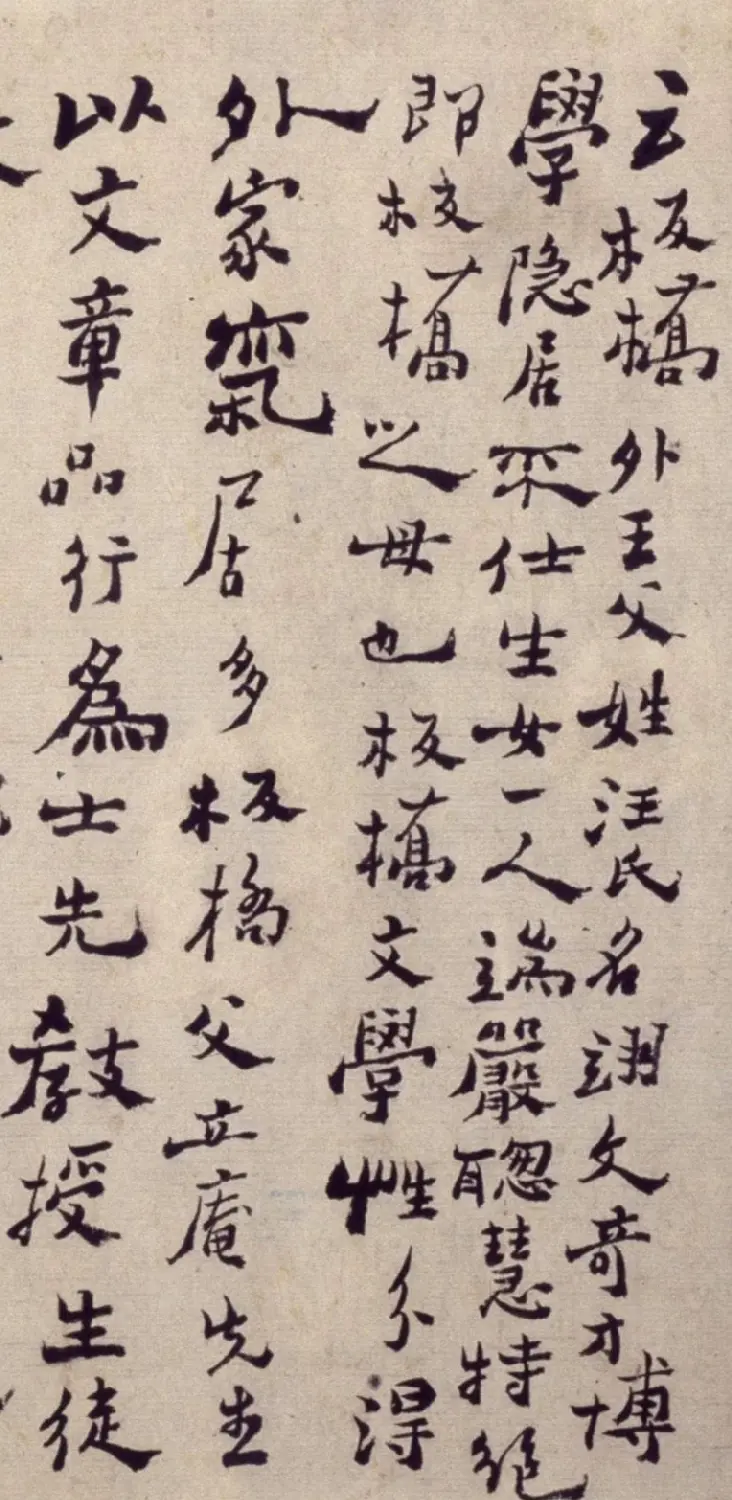 云板橋外王父姓汪氏名翊文奇才博
學隱居不仕生女一人端嚴聰慧特絕
即板橋之母也板橋文學性分得
外家氣居多板橋父立庵先生
以文章品行為士先教授生徒